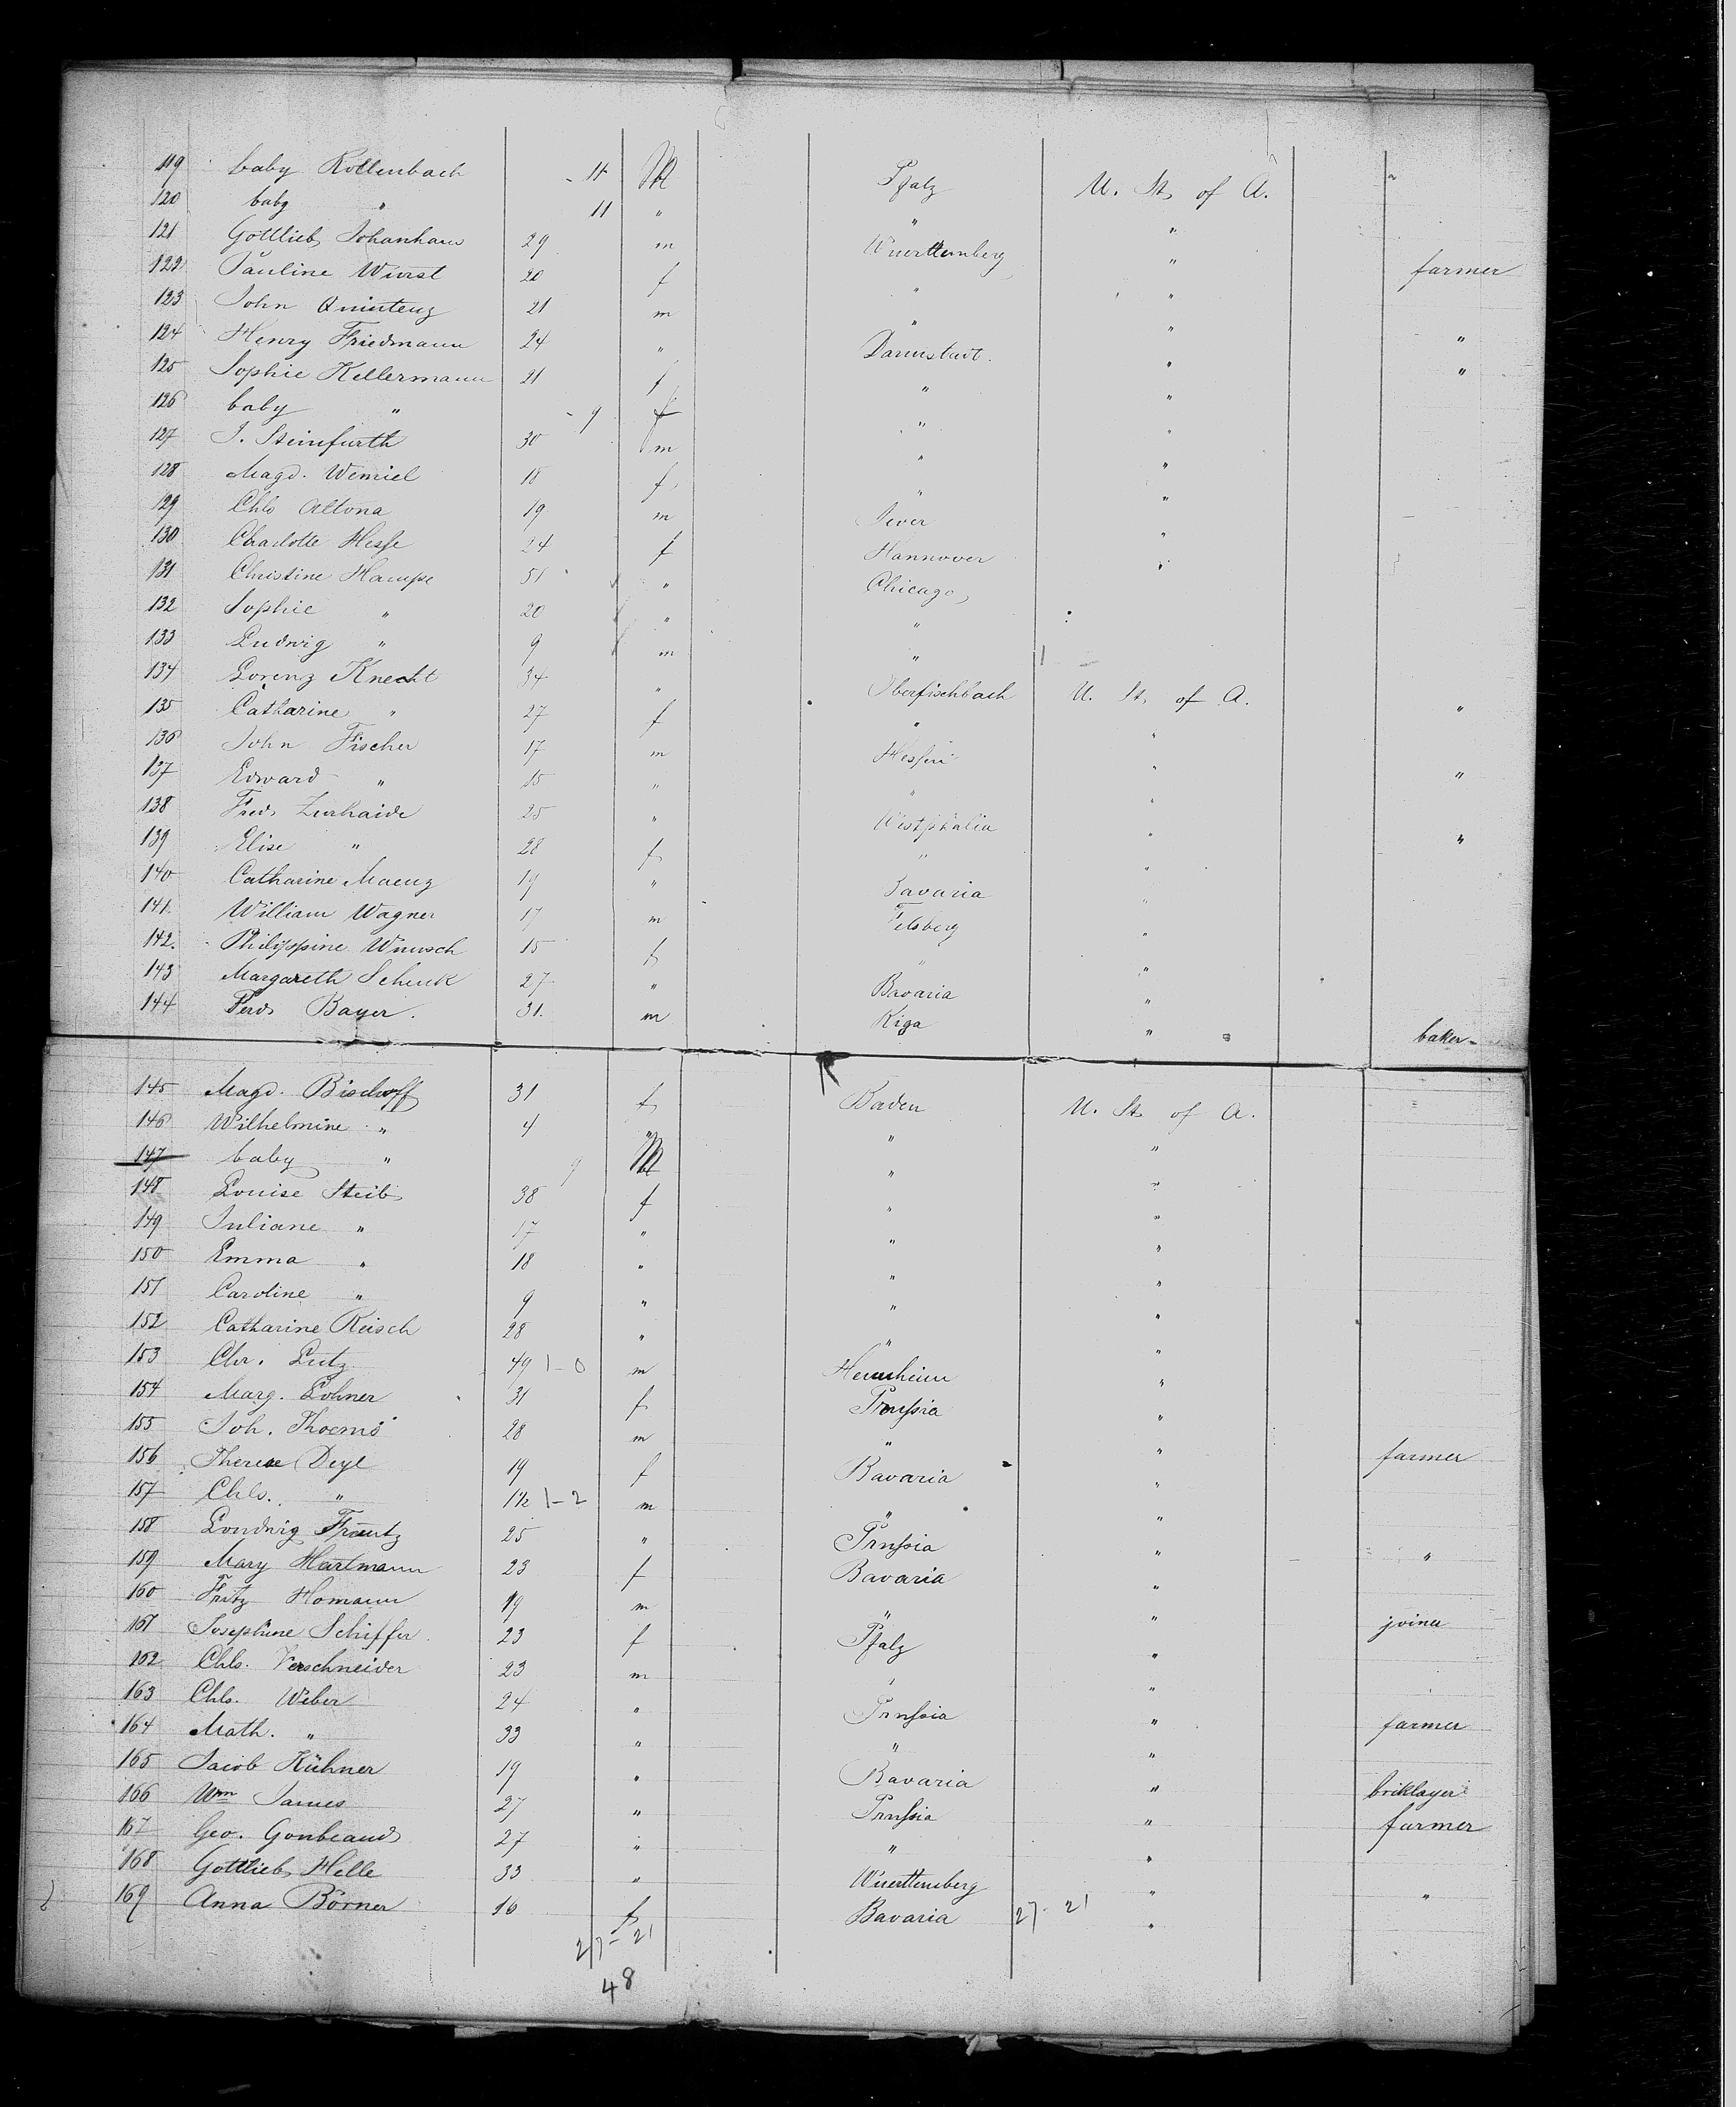 119 baby Rollenbach 11 M Pfalz U. St. of A. "
120 baby " 11 " " "
121 Gottlieb Johanhans 29 m Wuerttemberg " farmer
122 Pauline Wurst 20 f " "
123 John Quinteng 21 m " " "
124 Henry Friedmann 24 " Darmstadt. " "
125 Sophie Kellermann 21 f " "
126 baby " 9 f " "
127 J. Steinfurth 30 m " "
128 Magd. Wemiel 18 f " "
129 Chls Altona 19 m Jever "
130 Charlotte Hesse 24 f Hannover "
131 Christine Hampe 51 " Chicago
132 Sophie " 20 " "
133 Ludwig " 9 m "
134 Lorenz Knecht 34 " Oberfischbach U. St. of A. "
135 Catharine " 27 f " "
136 John Fischer 17 m Hessen " "
137 Edward " 15 " " "
138 Fred. Zurhaide 25 " Westphalia " "
139 Elise " 28 f " "
140 Catharine Maeng 19 " Bavaria "
141 William Wagner 17 m Felsberg "
142. Philippine Wunsch 15 f " "
143 Margareth Schenk 27 " Bavaria "
144 Ferd. Bayer. 31. m Riga " baker
145 Magd. Bischoff 31 f Baden U. St. of A.
146 Wilhelmine " 4 " " "
147 baby " 9 M " "
148 Louise Steib 38 f " "
149 Juliane " 17 " " "
150 Emma " 18 " " "
151 Caroline " 9 " " "
152 Catharine Reisch 28 " " "
153 Chr. Lutz 49 1-0 m Hernheim "
154 Marg. Lohner 31 f Prussia "
155 Joh. Thoems 28 m " " farmer
156 Therese Deyl 19 f Bavaria "
157 Chls. " 1½ 1-2 m " "
158 Loudwig Frantz 25 " Prussia " "
159 Mary Hartmann 23 f Bavaria "
160 Fritz Homann 19 m " " joiner
161 Josephine Schiffer 23 f Pfalz "
162 Chls. Verschneider 23 m " "
163 Chls. Weber 24 " Prussia " farmer
164 Math. " 33 " " "
165 Jacob Kühner 19 " Bavaria " briklayer
166 Wm James 27 " Prussia " farmer
167 Geo. Gonbeaud 27 " " "
168 Gottlieb Helle 33 " Wuerttemberg " "
169 Anna Börner 16 f Bavaria 27-21 "
27-21
48